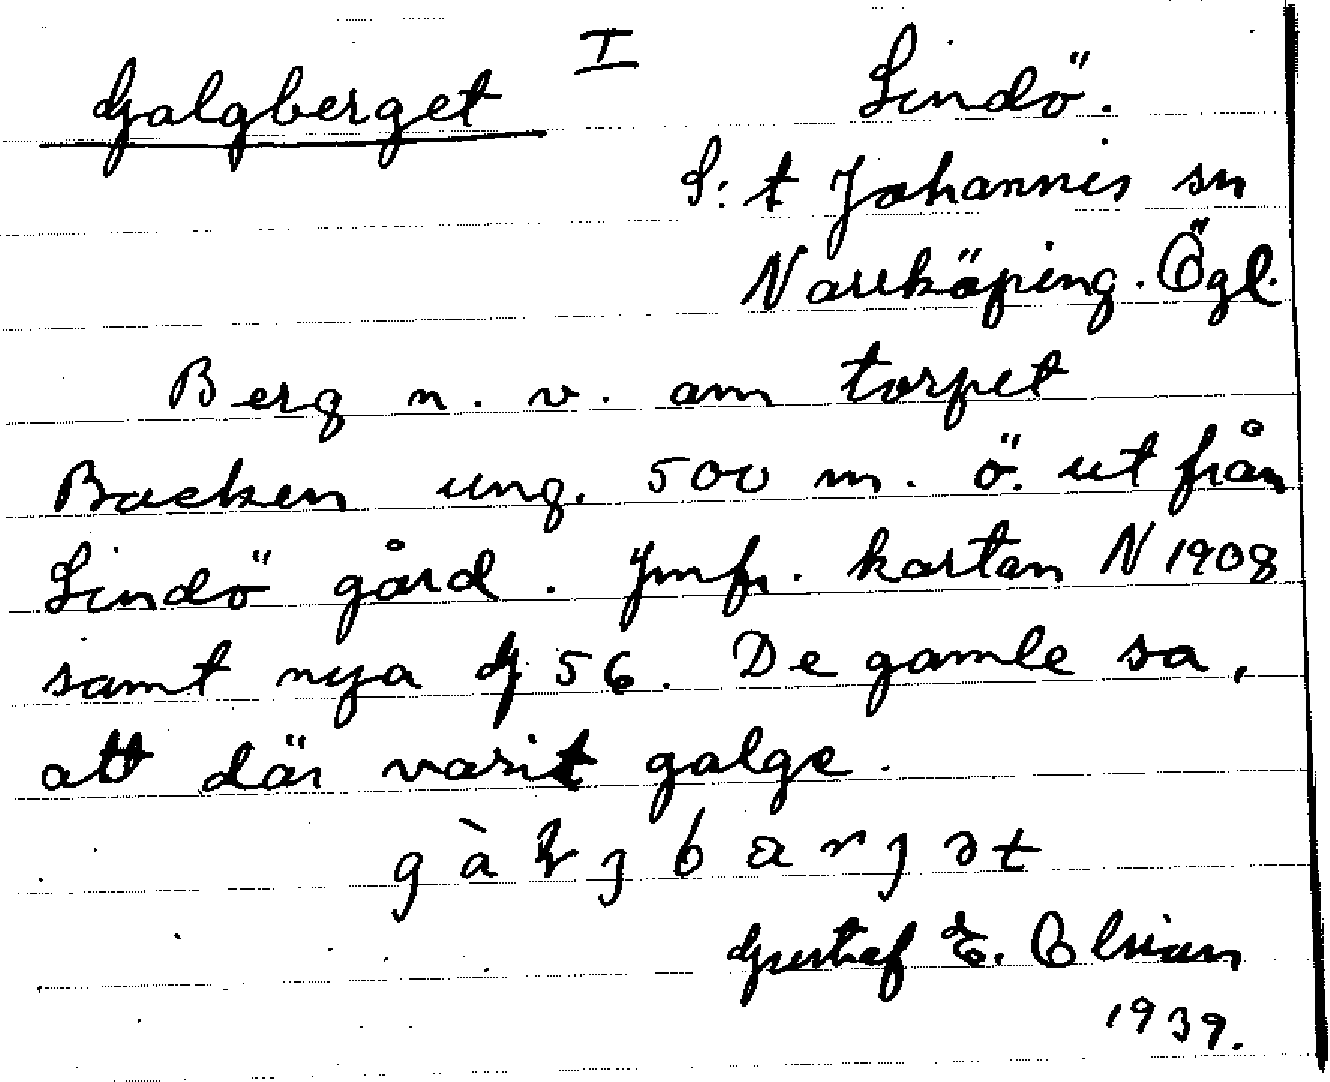 Galgberget I Lindö.
S:t Johannis sn
Norrköping. Ögl.
Berg n. v. om torpet
Backen ung. 500 m. ö. ut från
Lindö gård. Jmfr. kartan N 1908
samt nya G 56. De gamle sa,
att där varit galge.
Gustaf E. Olsson
1939.